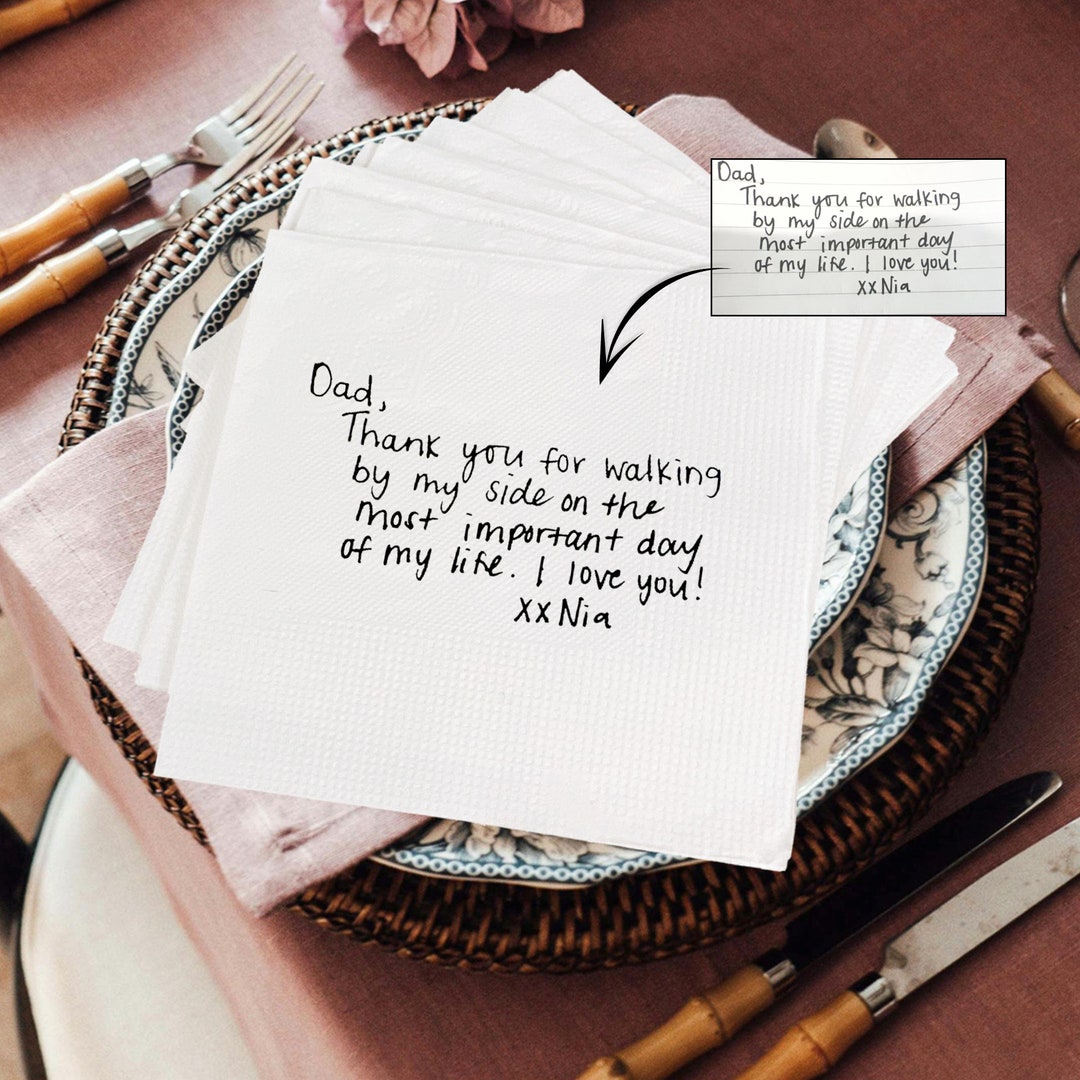 Dad,
Thank you for walking
by my side on the
most important day
of my life. I love you!
xx Nia
Dad,
Thank you for walking
by my side on the
most important day
of my life. I love you!
xx Nia